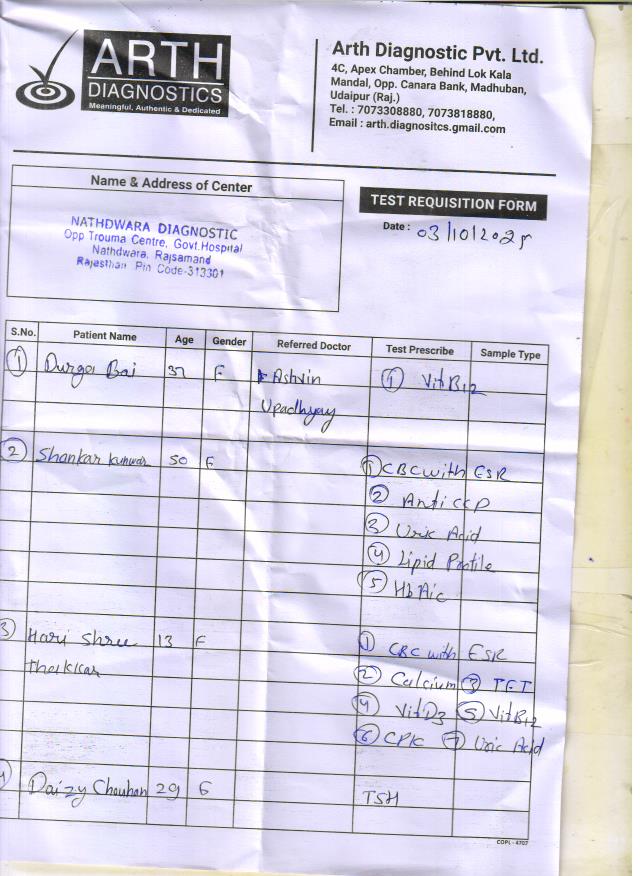 ARTH
DIAGNOSTICS
Meaningful, Authentic & Dedicated
Arth Diagnostic Pvt. Ltd.
4C, Apex Chamber, Behind Lok Kala
Mandal, Opp. Canara Bank, Madhuban,
Udaipur (Raj.)
Tel. : 7073308880, 7073818880,
Email : arth.diagnositcs.gmail.com
Name & Address of Center
NATHDWARA DIAGNOSTIC
Opp Trouma Centre, Govt.Hospital
Nathdwara, Rajsamand
Rajasthan Pin Code-313301
TEST REQUISITION FORM
Date : 03/10/2025
S.No. Patient Name Age Gender Referred Doctor Test Prescribe Sample Type
① Durga Bai 37 F Ashvin ① Vit B12
Upadhyay
② Shankar Kunwar 50 F ① CBC with ESR
② Anti CCP
③ Uric Acid
④ Lipid Profile
⑤ HbA1c
③ Hari Shree 13 F ① CBC with ESR
Thakkar ② Calcium ③ TFT
④ Vit D3 ⑤ Vit B12
⑥ CPK ⑦ Uric Acid
Daizy Chouhan 29 F TSH
COPL - 4707